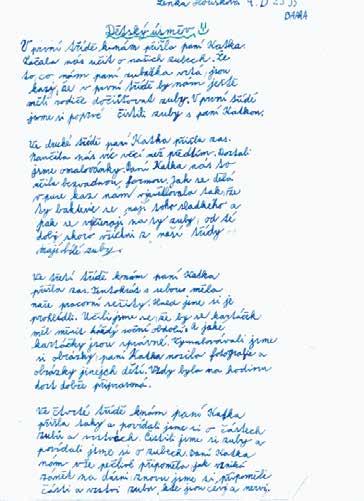 Lenka 4. D
Dětský úsměv
V první třídě knám přišla paní Katka.
Začala nás učit o našich zubech. Že
to, co nám paní zubařka vrtá, jsou
kazy, že v první třídě by nám ještě
měli rodiče dočišťovat zuby. V první třídě
jsme si poprvé čistili zuby s paní Katkou.
Ve druhé třídě paní Katka přišla zas.
Naučila nás víc věcí než předtím. Dostali
jsme omalovánky. Paní Katka nás to
učila bezvadnou formou. Jak se dělá
v puse kaz nám vysvětlovala tak, že
ty bakterie se nají toho sladkého a
pak se vyčurají na ty zuby, od té
doby skoro všichni z naší třídy
mají bílé zuby.
Ve třetí třídě knám paní Katka
přišla zas. Tentokrát s sebou měla
naše pracovní sešity. Hned jsme si je
prohlédli. Učili jsme se, že by se kartáček
měl měnit každý roční období. A jaké
kartáčky jsou správné. Vymalovávali jsme
si obrázky, paní Katka nosila fotografie a
obrázky jinejch dětí. Vždy byla na hodinu
dost dobře připravená.
Ve čtvrté třídě knám paní Katka
přišla taky a povídali jsme si o částech
zubů a vrstvách. Čistili jsme si zuby a
povídali jsme si o zubech. Paní Katka
nám vše pečlivě připomněla jak vzniká
zánět na dásni znovu jsme si připoměli
části a vrstvi zubu, kde jsou céva a nervi.